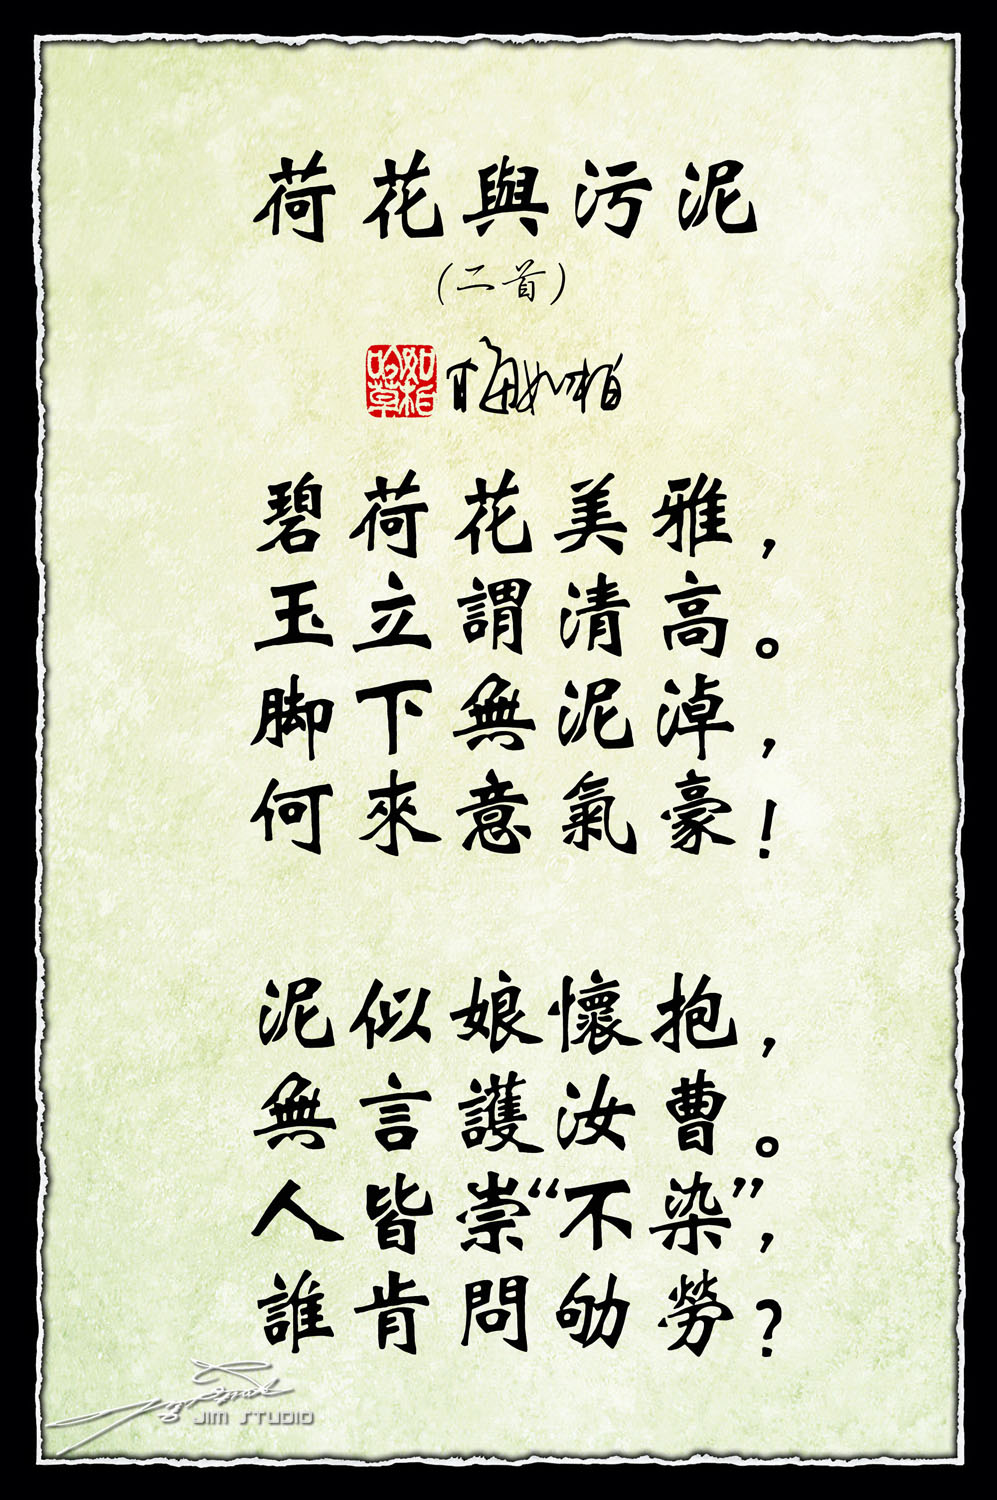 荷花與污泥
(二首)
如柏吟草 梅如柏
碧荷花美雅，
玉立謂清高。
脚下無泥淖，
何來意氣豪！
泥似娘懷抱，
無言護汝曹。
人皆崇“不染”，
誰肯問劬勞？
JIM STUDIO